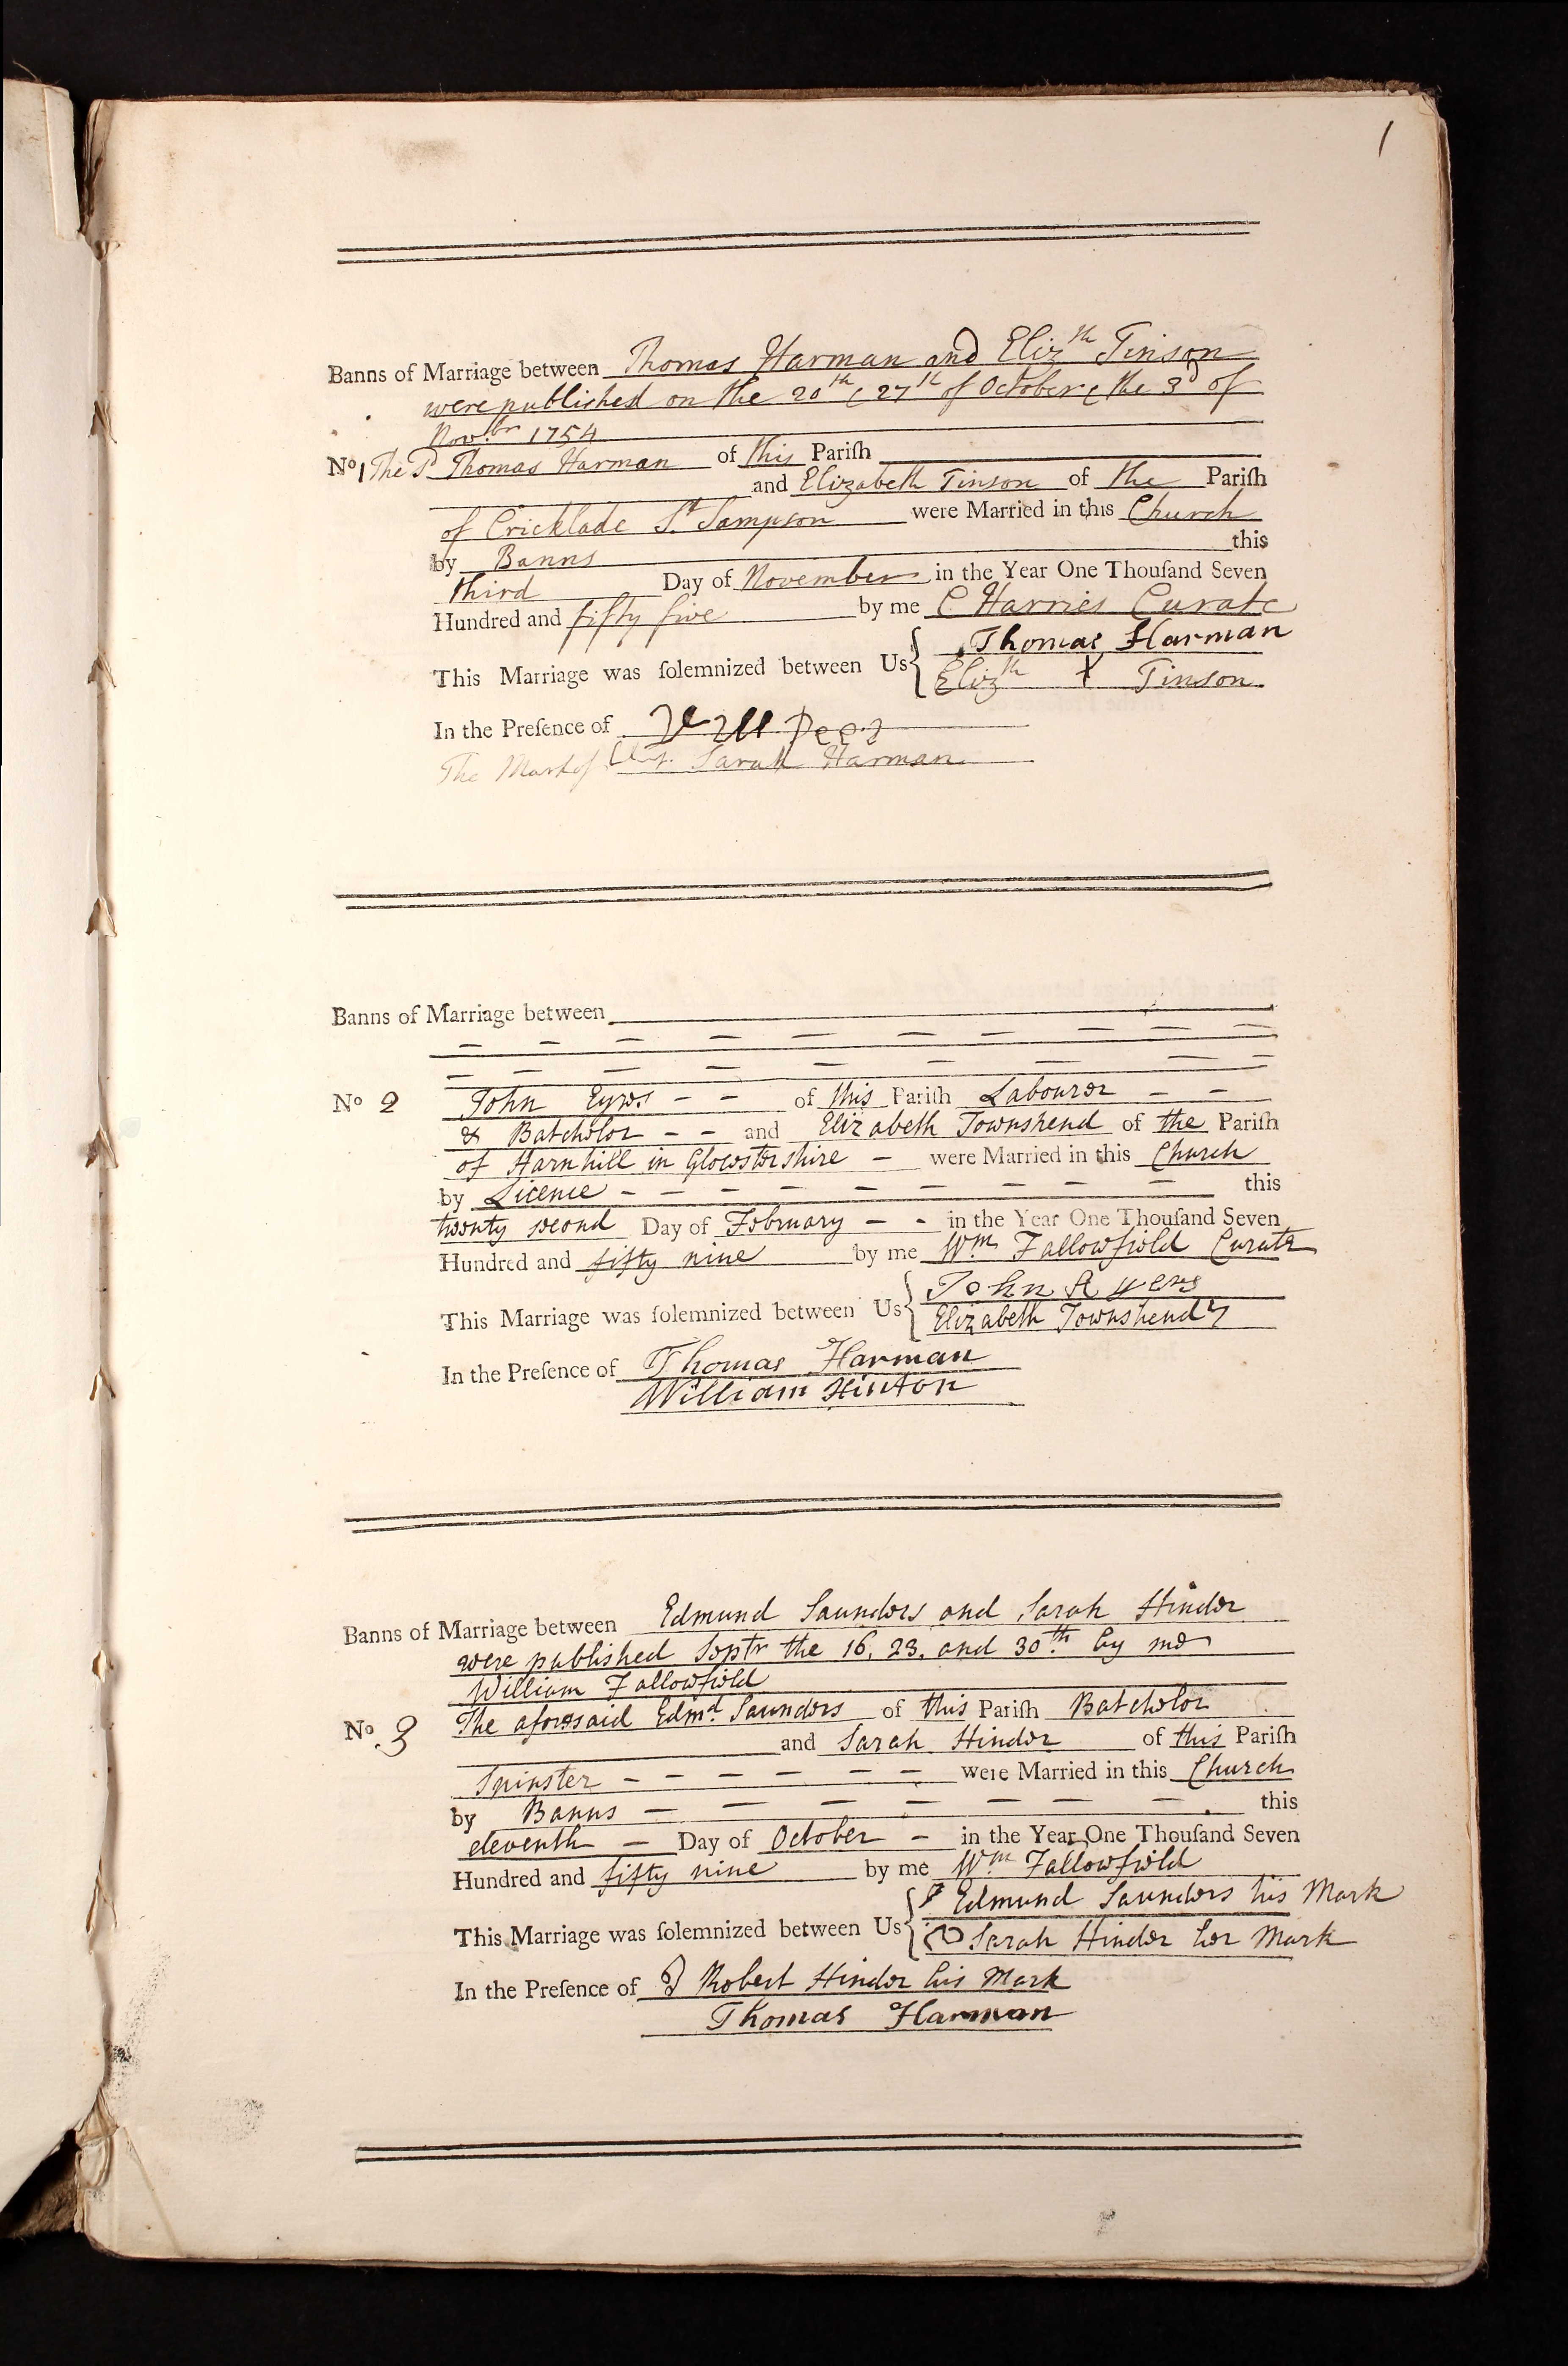 1
Banns of Marriage between Thomas Harman and Elizth Tinson
were published on the 20th & 27th of October & the 3d of
Novbr. 1754
No 1 The sd Thomas Harman of this Pariſh
and Elizabeth Tinson of the Pariſh
of Cricklade St Sampson were Married in this Church
by Banns this
third Day of November in the Year One Thouſand Seven
Hundred and fifty five by me C Harries Curate
This Marriage was ſolemnized between Us { Thomas Harman
Elizth X Tinson
In the Preſence of Will
The Mark of Sarah Harman
Banns of Marriage between
No 2 John Eyres of this Pariſh Labourer
& Batchelor and Elizabeth Townshend of the Pariſh
of Harnhill in Glocestershire were Married in this Church
by Licence this
twenty second Day of February in the Year One Thouſand Seven
Hundred and fifty nine by me Wm. Fallowfield Curate
This Marriage was ſolemnized between Us { John Ayers
Elizabeth Townshend
In the Preſence of Thomas Harman
William Hinton
Banns of Marriage between Edmund Saunders and Sarah Hinder
were published Septr the 16, 23, and 30th. by me
William Fallowfield
No 3 The aforesaid Edmd. Saunders of this Pariſh Batchelor
and Sarah Hinder of this Pariſh
Spinster were Married in this Church
by Banns this
eleventh Day of October in the Year One Thouſand Seven
Hundred and fifty nine by me Wm. Fallowfield
This Marriage was ſolemnized between Us { Edmund Saunders his Mark
Sarah Hinder her Mark
In the Preſence of Robert Hinder his Mark
Thomas Harman